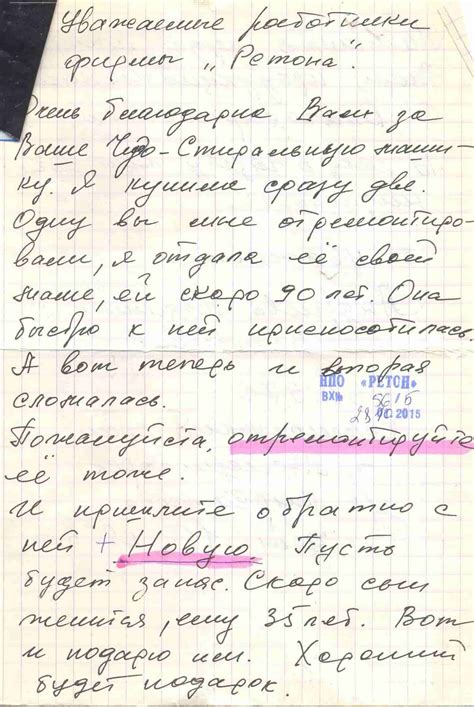 Уважаемые работники
фирмы „Ретона".
Очень благодарна Вам за
Ваше Чудо-Стиральную машин-
ку. Я купила сразу две.
Одну вы мне отремонтиро-
вали, я отдала её своей
маме, ей скоро 90 лет. Она
быстро к ней приспособилась.
А вот теперь и вторая
НПО «РЕТОН»
ВХ№ 56/5
сломалась.
2015
Пожалуйста, отремонтируйте
её тоже.
И пришлите обратно с
ней + Новую. Пусть
будет запас. Скоро сын
женится, ему 35 лет. Вот
и подарю им. Хороший
будет подарок.